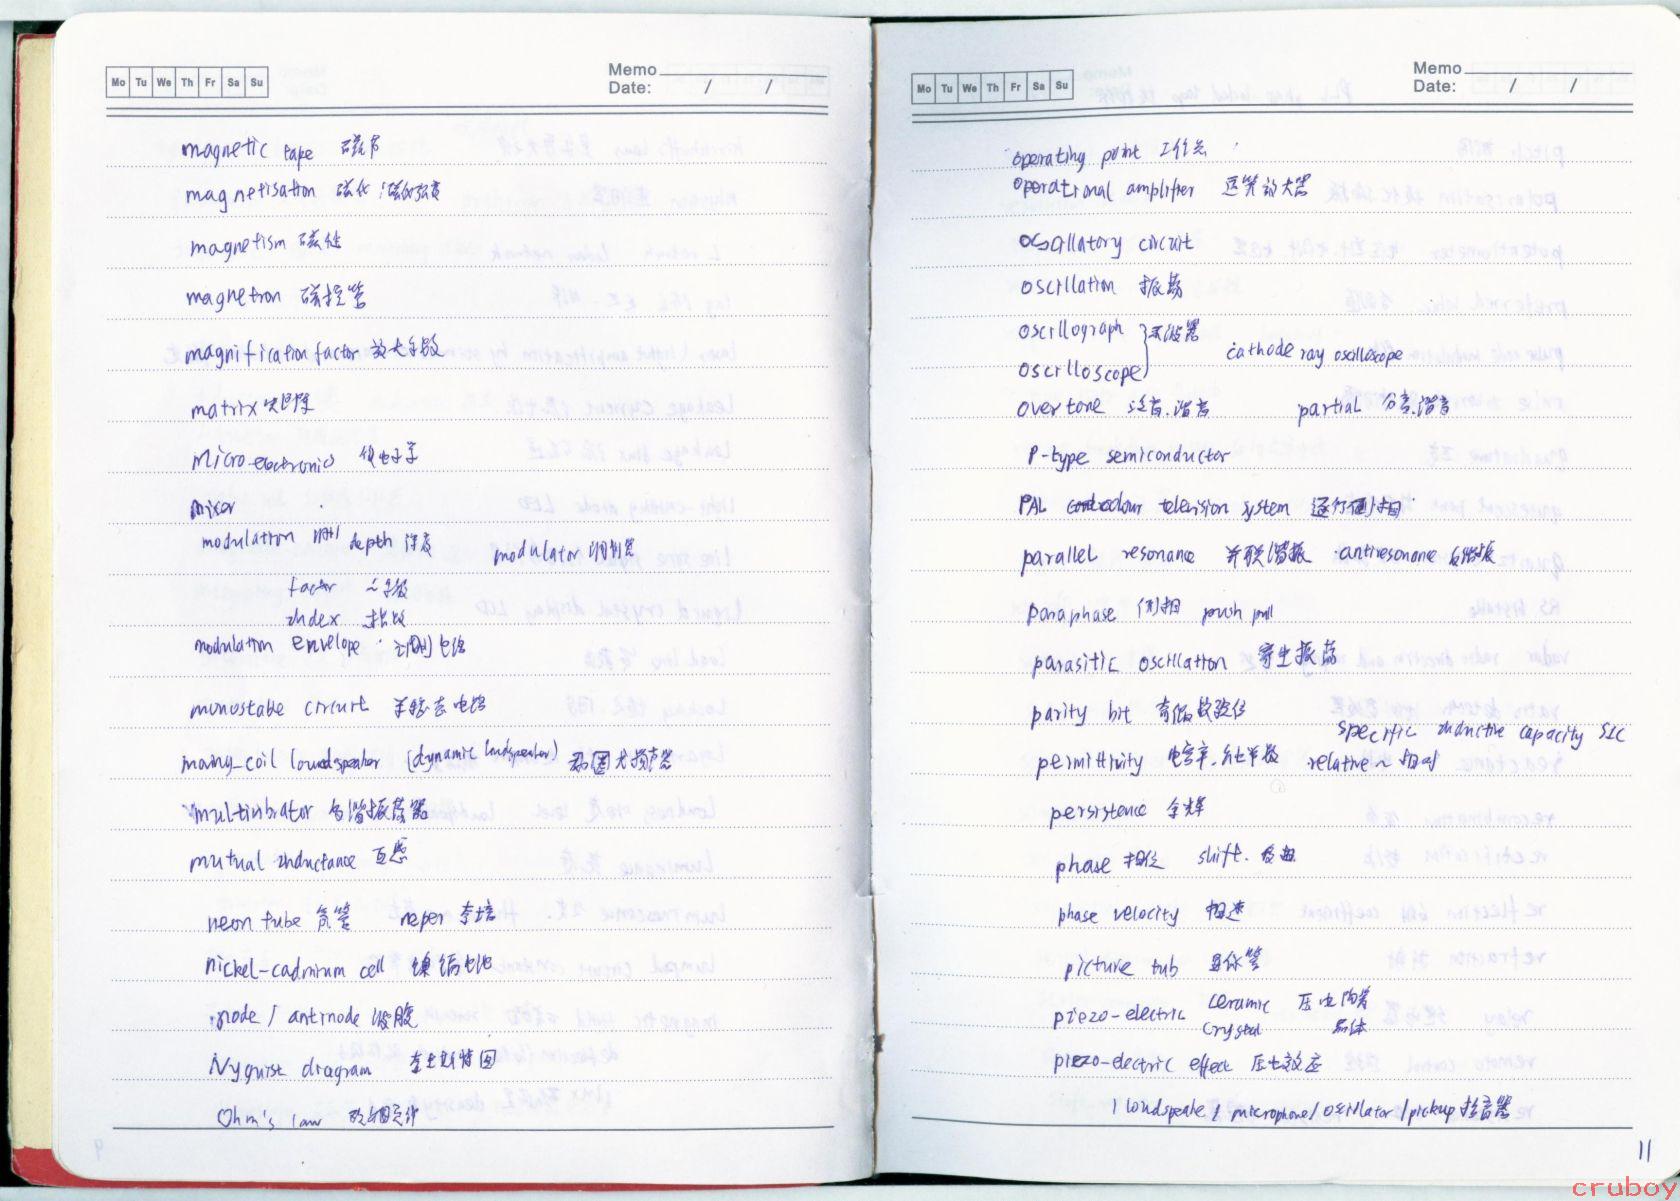 Mo Tu We Th Fr Sa Su
Memo
Date: / /
magnetic tape 磁带
magnetisation 磁化;磁化强度
magnetism 磁性
magnetron 磁控管
magnification factor 放大系数
matrix 矩阵
Micro-electronic 微电子学
mixer
modulation 调制 depth 深度 modulator 调制器
factor ~系数
index 指数
modulation envelope 调制包络
monostable circuit 单稳态电路
loudspeaker (dynamic loudspeaker) 动圈式扬声器
multivibrator 多谐振荡器
mutual inductance 互感
neon tube 氖管 neper 奈培
nickel-cadmium cell 镍镉电池
node / antinode 波腹
Nyquist diagram 奈奎斯特图
Ohm's law 欧姆定律
Mo Tu We Th Fr Sa Su
Memo
Date: / /
operating point 工作点
operational amplifier 运算放大器
oscillatory circuit
oscillation 振荡
oscillograph } 示波器
cathode ray oscilloscope
oscilloscope
overtone 泛音.谐音 partial 分音.谐音
P-type semiconductor
PAL colour television system 逐行倒相
parallel resonance 并联谐振 antiresonance 反谐振
paraphase 倒相 push pull
parasitic oscillation 寄生振荡
parity bit 奇偶校验位
specific inductive capacity SIC
permittivity 电容率.介电常数 relative ~ 相对
persistence 余辉
phase 相位 shift.
phase velocity 相速
picture tub 显像管
ceramic 压电陶瓷
piezo-electric
crystal 晶体
piezo-electric effect 压电效应
/ loudspeake / microphone / oscillator / pickup 拾音器
11
cruboy